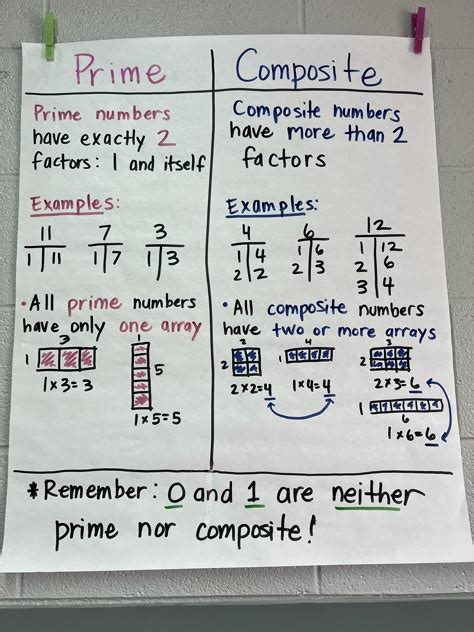 Prime
Prime numbers
have exactly 2
factors: 1 and itself
Examples:
11
1 11
7
1 7
3
1 3
• All prime numbers
have only one array
3
1
1x3=3
1
5
1x5=5
Composite
Composite numbers
have more than 2
factors
Examples:
4
1 4
2 2
6
1 6
2 3
12
1 12
2 6
3 4
• All composite numbers
have two or more arrays
2
2
2x2=4
4
1
1x4=4
3
2
2x3=6
1
6
1x6=6
*Remember: 0 and 1 are neither
prime nor composite!